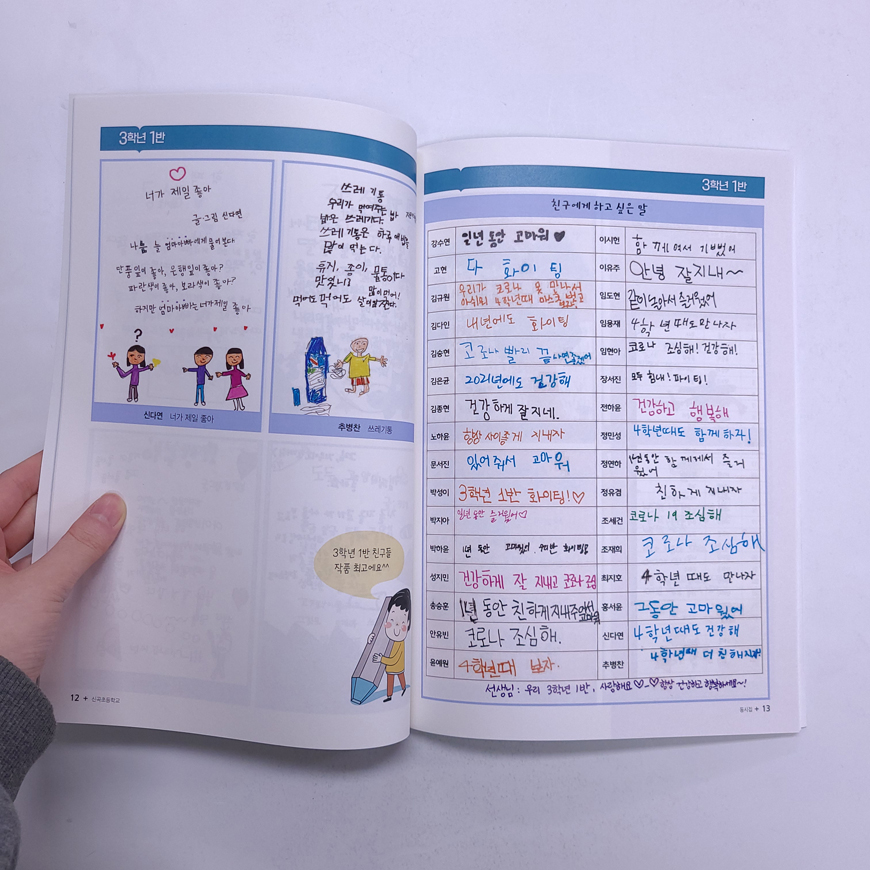 3학년 1반
너가 제일 좋아
글·그림 신다연
나는 늘 엄마아빠에게 물어본다
단풍잎이 좋아, 은행잎이 좋아?
파란색이 좋아, 보라색이 좋아?
하지만 엄마아빠는 너가 제일 좋아
?
신다연 너가 제일 좋아
쓰레기통
우리가 먹여주는 밥
쓰레기다.
쓰레기통은 하루에
많이 먹는다.
휴지, 종이, 물통이다
맛있니?
많이 먹어!
먹어도 먹어도 살이 찐다.
추병찬 쓰레기통
3학년 1반 친구들
작품 최고에요^^
12 + 신곡초등학교
3학년 1반
친구에게 하고 싶은 말
강수연 일년 동안 고마워 ♥
이시헌 함께여서 기뻤어
고현 다 화이팅
이유주 안녕 잘지내~
김규원 우리가 코로나 못 만나서
아쉬워 4학년때 마스크 벗고
임도현 같이 놀아서 즐거웠어
김다인 내년에도 화이팅
임용재 4학년때도 만나자
김승현 코로나 빨리 끝나면 좋겠어
임현아 코로나 조심해! 건강해!
김은균 2021년에도 건강해
장서진 모두 힘내! 파이팅!
김종현 건강하게 잘지네.
전하윤 건강하고 행복해
노하윤 항상 사이좋게 지내자
정민성 4학년때도 함께하자!
문서진 있어줘서 고마워
정연하 1년동안 함께해서 즐거
웠어
박성이 3학년 1반 화이팅!♡
정유겸 친하게 지내자
박지아 일년 동안 즐거웠어♡
조세건 코로나 19 조심해
박하윤 1년 동안 고마웠어 화이팅
조재희 코로나 조심해
성지민 건강하게 잘 지내고 코로나 조심
최지호 4학년때도 만나자
송승훈 1년 동안 친하게 지내주어서
고마워
홍서윤 그동안 고마웠어
안유빈 코로나 조심해.
신다연 4학년때도 건강해
윤예원 4학년때 보자.
추병찬 4학년때 더 친해지자!
선생님: 우리 3학년 1반, 사랑해요♡-♡ 항상 건강하고 행복하세요~!
동시집 + 13